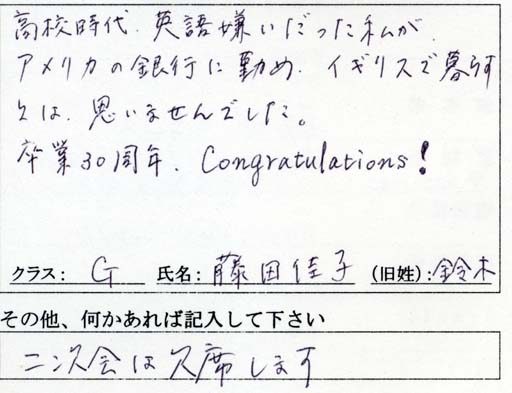 高校時代、英語嫌いだった私が、
アメリカの銀行に勤め、イギリスで暮らす
とは、思いませんでした。
卒業30周年、Congratulations!
クラス: G 氏名: 藤田佳子 (旧姓):鈴木
その他、何かあれば記入して下さい
二次会は欠席します